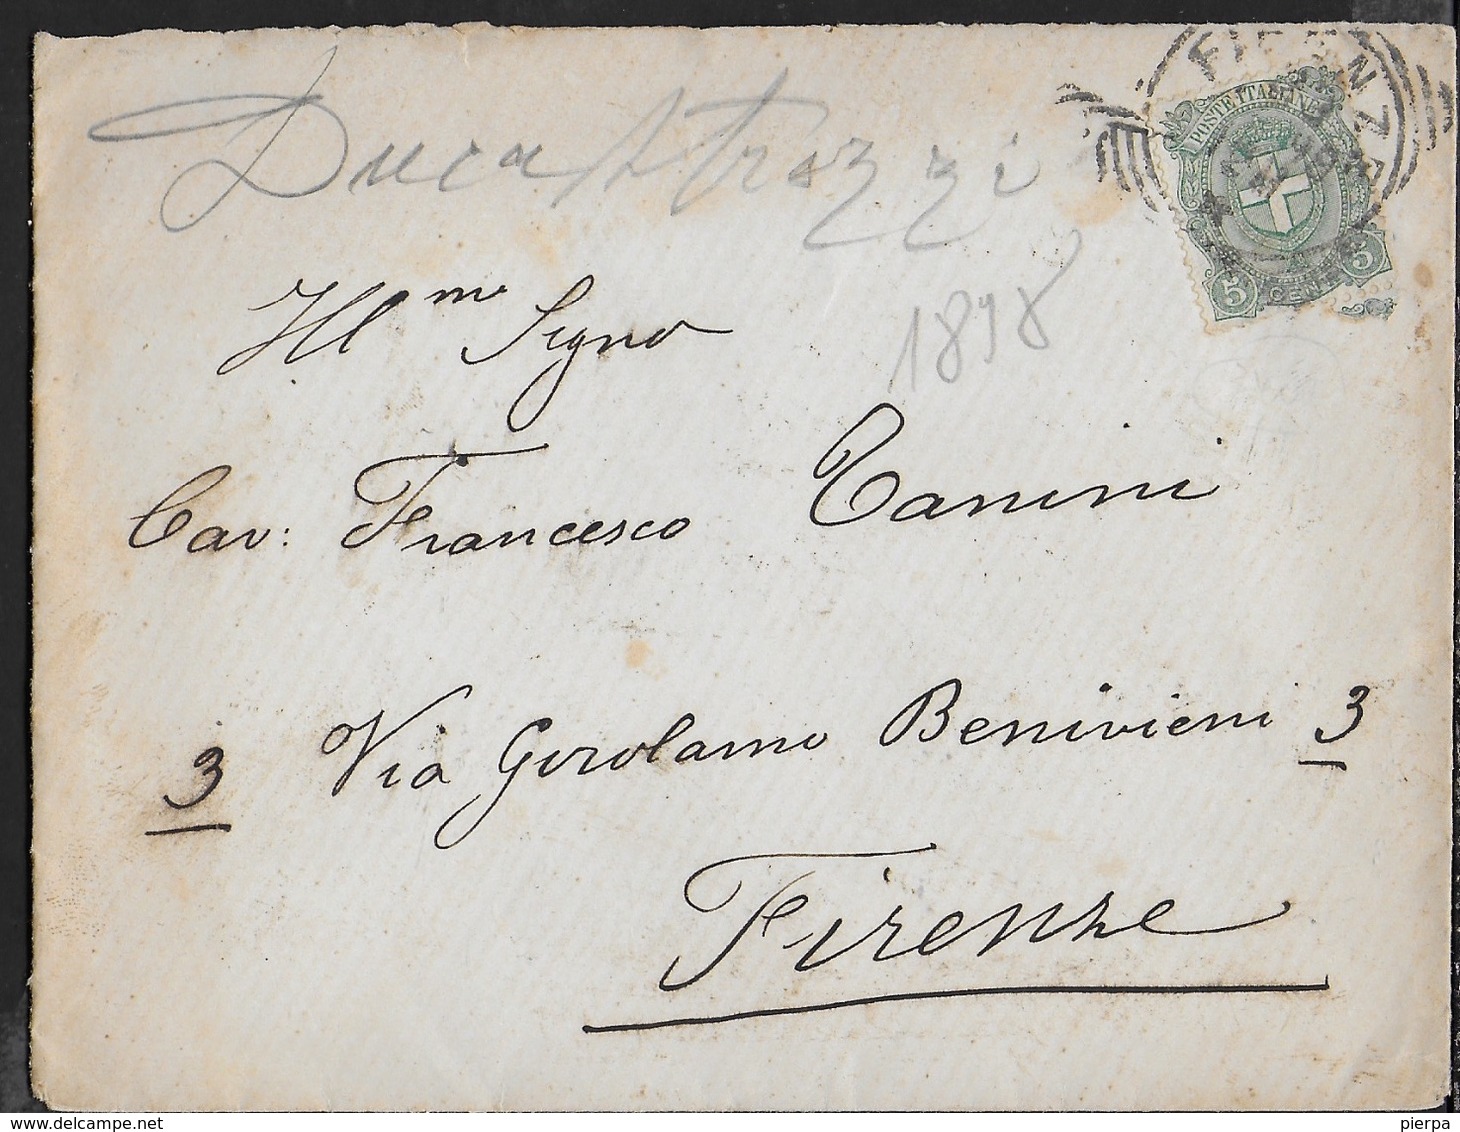 FIRENZE
POSTE ITALIANE
5 CENT. 5
Duca Strozzi
1898
Ill mo Signo
Cav: Francesco Tanini
3 Via Girolamo Benivieni 3
Firenze
pierpa
delcampe.net